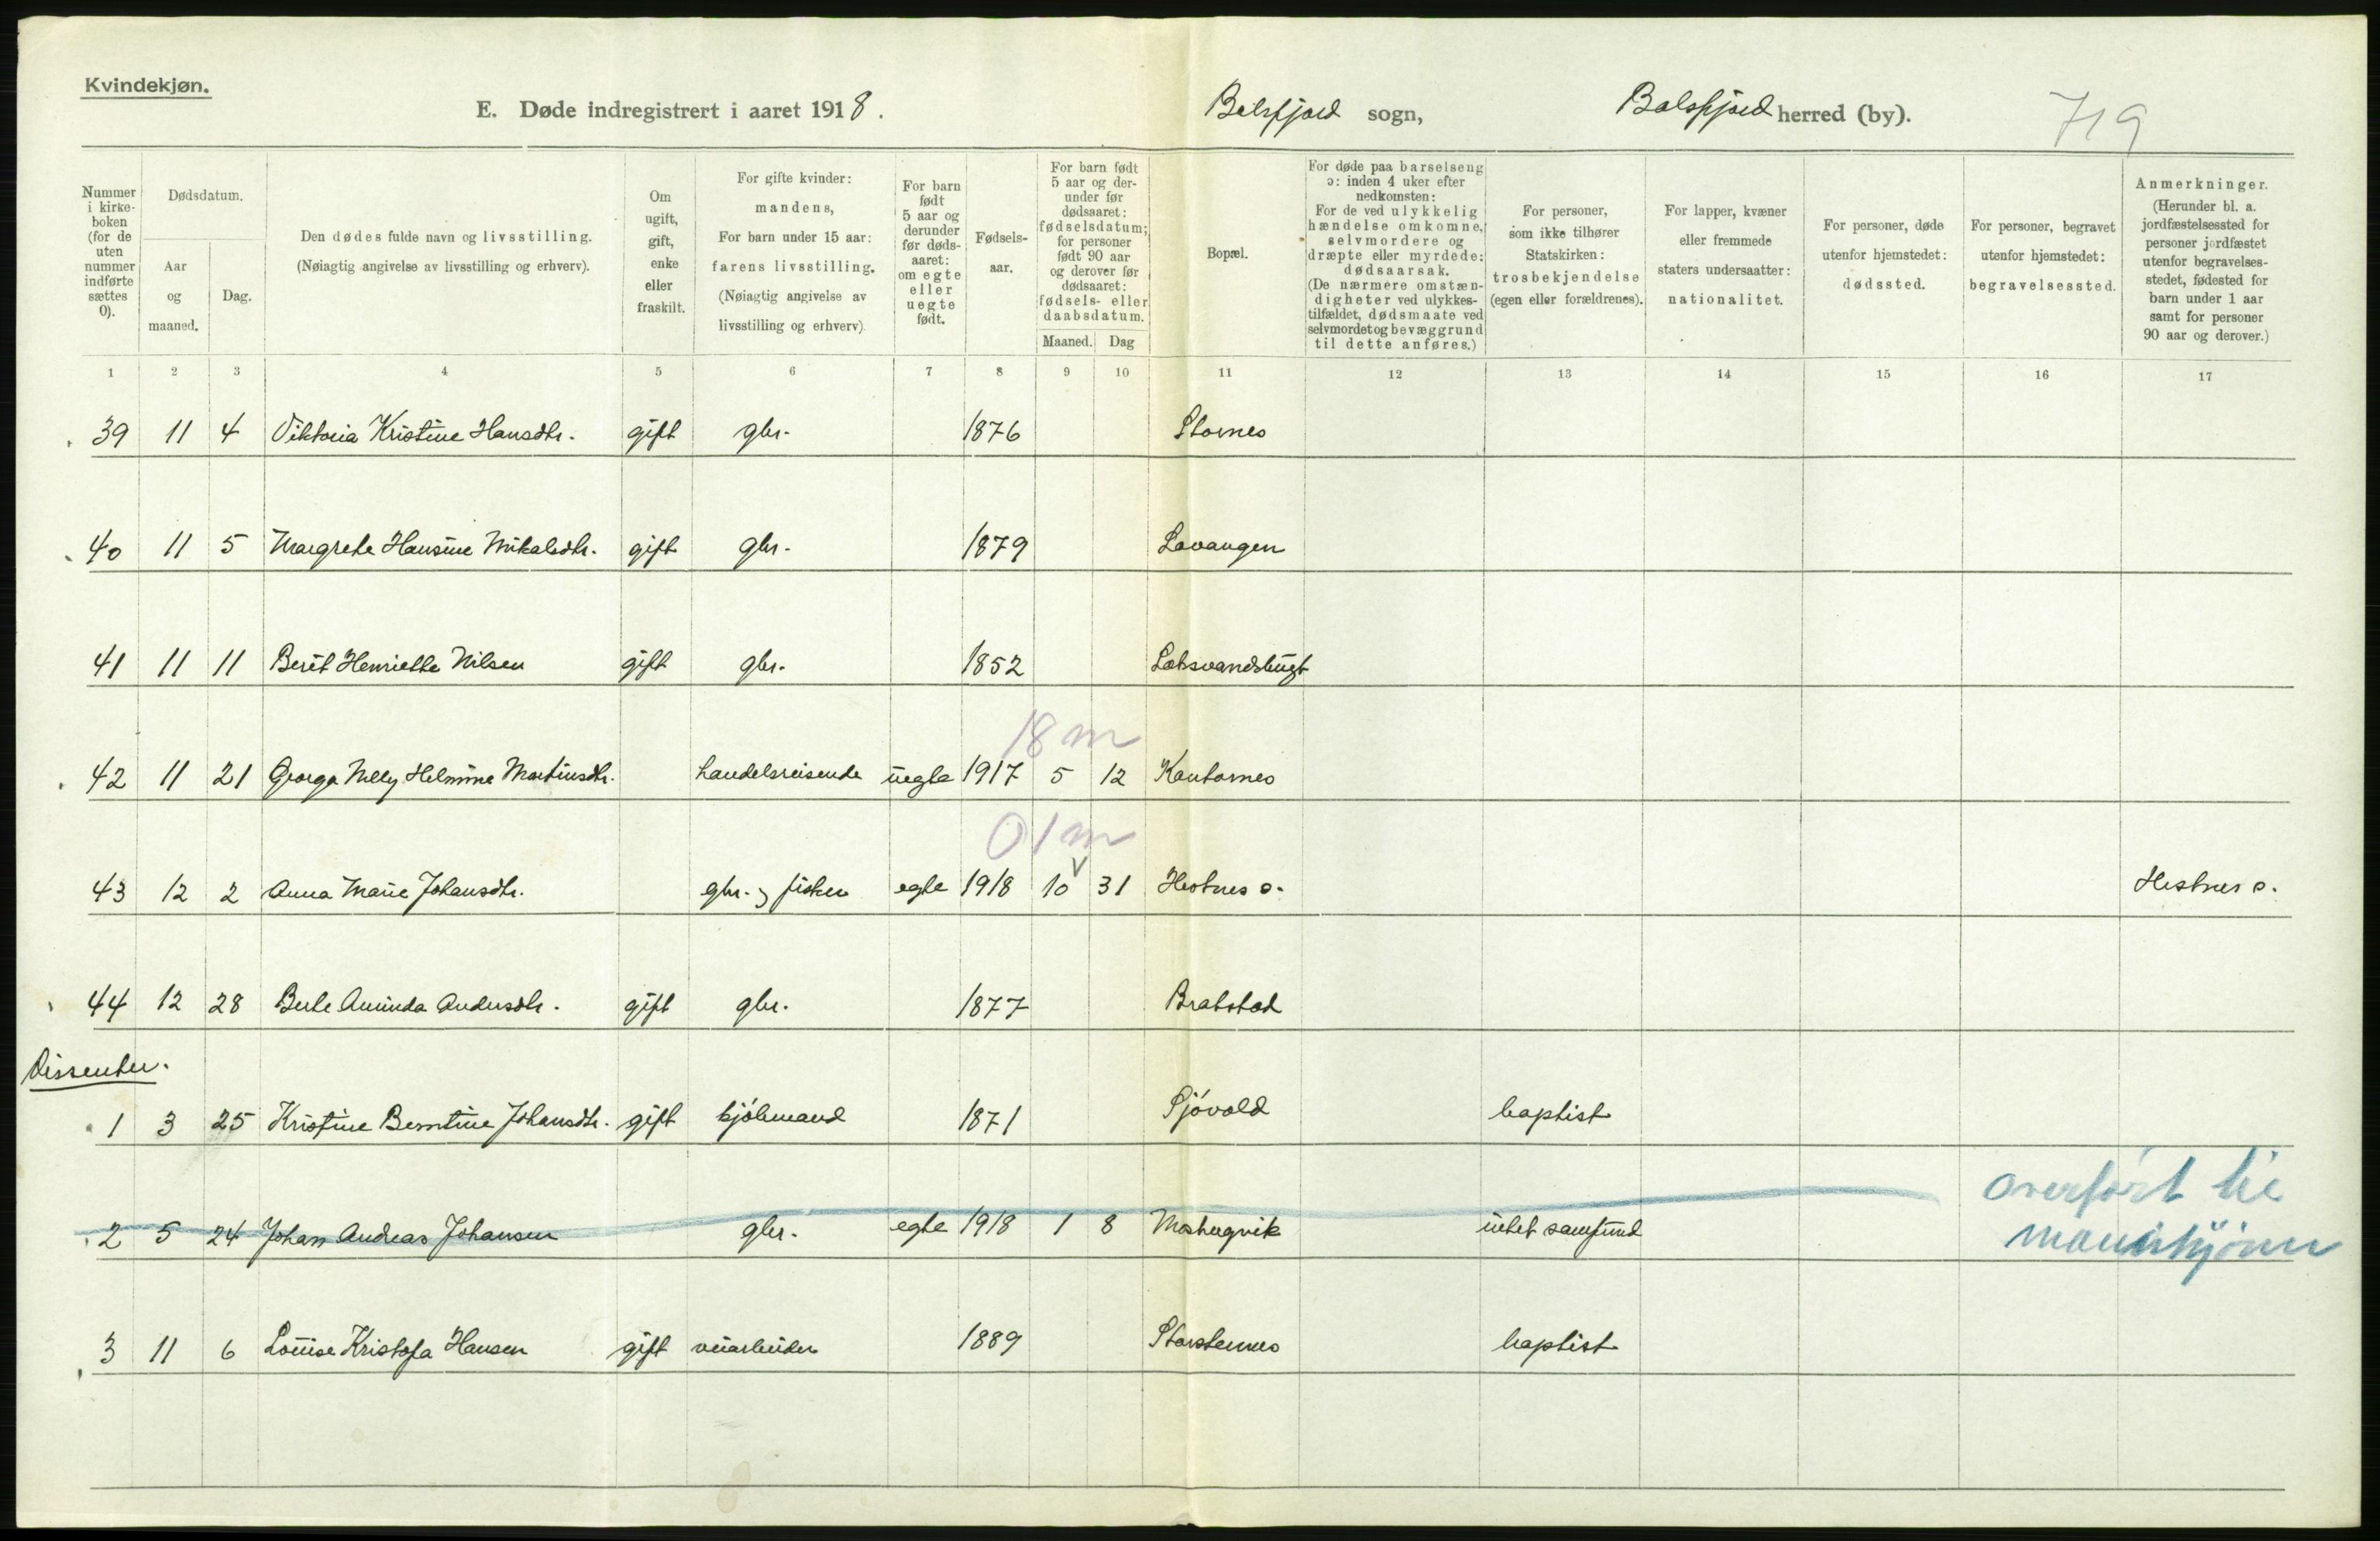 Kvindekjøn.
E. Døde indregistrert i aaret 1918.
Balsfjord sogn,
Balsfjord herred (by).
719
Nummer i kirke- boken (for de uten nummer indførte sættes 0).
Dødsdatum.
Aar og maaned.
Dag.
Den dødes fulde navn og livsstilling.
(Nøiagtig angivelse av livsstilling og erhverv).
Om ugift, gift, enke eller fraskilt.
For gifte kvinder: mandens,
For barn under 15 aar: farens livsstilling.
(Nøiagtig angivelse av livsstilling og erhverv)
For barn født 5 aar og derunder før døds- aaret: om egte eller uegte født.
Fødsels- aar.
For barn født 5 aar og der- under før dødsaaret: fødselsdatum; for personer født 90 aar og derover før dødsaaret: fødsels- eller daabsdatum.
Maaned. Dag
Bopæl.
For døde paa barselseng ɔ: inden 4 uker efter nedkomsten:
For de ved ulykkelig hændelse omkomne, selvmordere og dræpte eller myrdede: dødsaarsak.
(De nærmere omstæn- digheter ved ulykkes- tilfældet, dødsmaate ved selvmordet og bevæggrund til dette anføres.)
For personer, som ikke tilhører Statskirken: trosbekjendelse (egen eller forældrenes).
For lapper, kvæner eller fremmede staters undersaatter: nationalitet.
For personer, døde utenfor hjemstedet: dødssted.
For personer, begravet utenfor hjemstedet: begravelsessted.
Anmerkninger.
(Herunder bl. a. jordfæstelsessted for personer jordfæstet utenfor begravelses- stedet, fødested for barn under 1 aar samt for personer 90 aar og derover.)
1 2 3 4 5 6 7 8 9 10 11 12 13 14 15 16 17
39 11 4 Viktoria Kristine Hansdtr. gift gbr. 1876 Stornes
40 11 5 Margrete Hansine Mikalsdtr. gift gbr. 1879 Lavangen
41 11 11 Berit Henriette Nilsen gift gbr. 1852 Laksvandsbugt
18 m
42 11 21 Georga Nelly Helmine Martinsdtr. handelsreisende uegte 1917 5 12 Kantornes
01 m
43 12 2 Anna Marie Johansdtr. gbr. og fisker egte 1918 10 31 Hestnes ø. Hestnes ø.
44 12 28 Berte Aminda Andersdtr. gift gbr. 1877 Bratstad
Dissenter.
1 3 25 Kristine Berntine Johansdtr. gift kjøbmand 1871 Sjövold baptist
2 5 24 Johan Andreas Johansen gbr. egte 1918 1 8 intet samfund
overført til
mannkjønn
3 11 6 Louise Kristofa Hansen gift veiarbeider 1889 Storsteinnes baptist